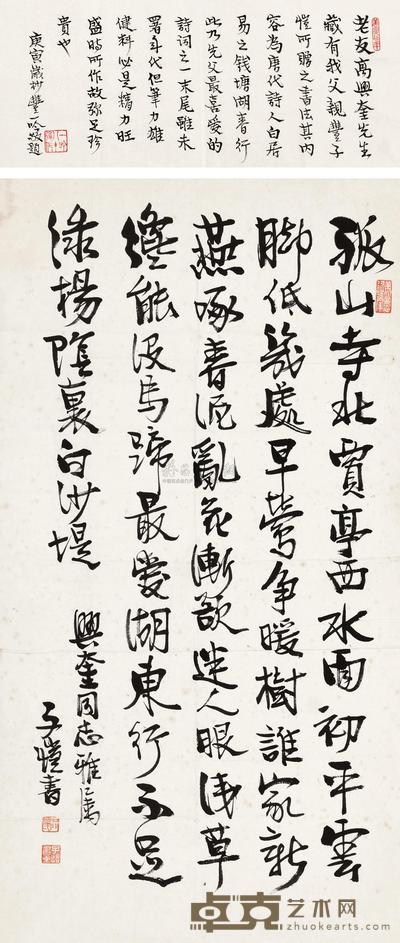 老友高興奎先生
藏有我父親豐子
愷所贈之書法其內
容為唐代詩人白居
易之錢塘湖春行
此乃先父最喜愛的
詩詞之一末尾雖未
署年代但筆力雄
健料必是精力旺
盛時所作故弥足珍
貴也
庚寅歲杪豐一吟敬題
孤山寺北賈亭西水面初平雲
脚低幾處早鶯争暖樹誰家新
燕啄春泥亂花漸欲迷人眼浅草
纔能没馬蹄最愛湖東行不足
绿楊陰裏白沙堤
興奎同志雅屬
子愷書
卓克艺术网
www.zhuokearts.com